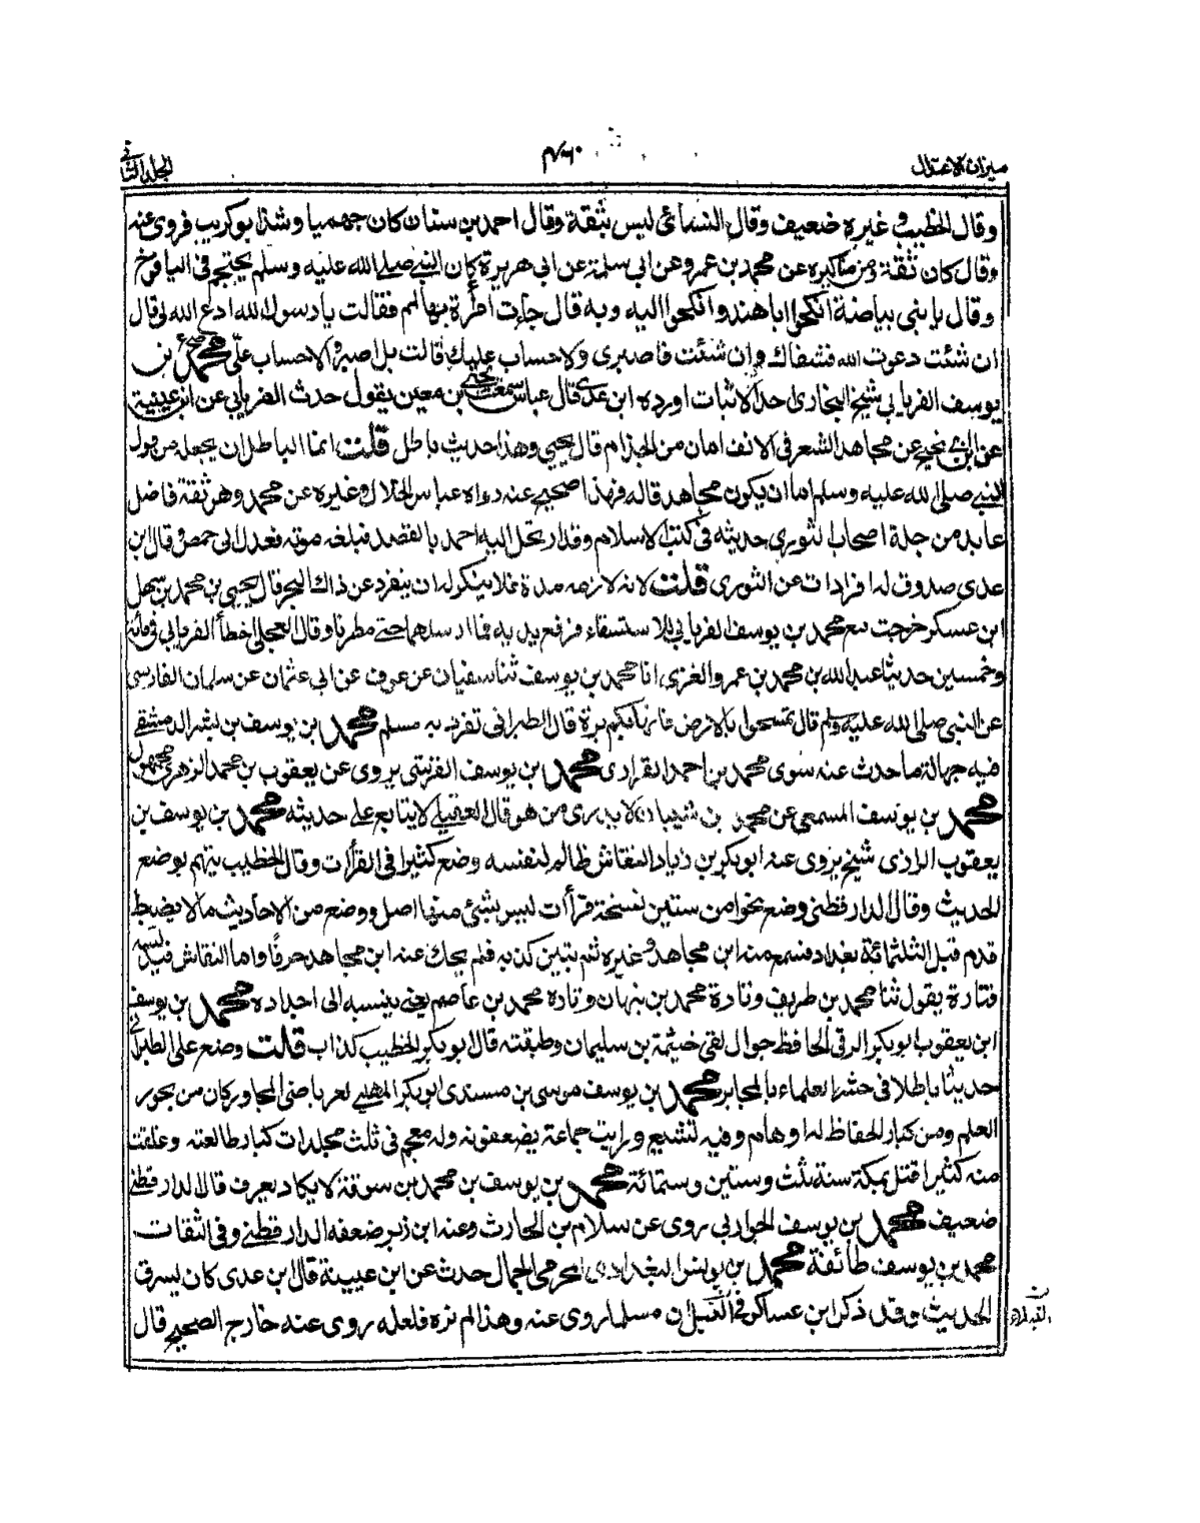 ميزان الاعتدال
٤٦٠
الجلد الثاني
وقال الخطيب وغيره ضعيف وقال النسائي ليس بثقة وقال احمد بن سنان كان جهميا وشذ ابو كريب فروى عنه
وقال كان ثقة ومن مناكيره عن محمد بن عمرو عن ابي سلمة عن ابي هريرة كان النبي صلى الله عليه وسلم يحتجم في اليافوخ
وقال يا بني بياضة انكحوا ابا هند وانكحوا اليه وبه قال جاءت امرأة بها لمم فقالت يا رسول الله ادع الله لي قال
ان شئت دعوت الله فشفاك وإن شئت فاصبري ولا حساب عليك قالت بل اصبر ولا حساب علي محمد بن
يوسف الفريابي شيخ البخاري احد الاثبات اورده ابن عدي قال عباس سمعت يحيى بن معين يقول حدث الفريابي عن ابن عيينة
عن ابن ابي نجيح عن مجاهد الشعر في الانف امان من الجذام قال يحيى وهذا حديث باطل قلت انما الباطل ان يجعله من قول
النبي صلى الله عليه وسلم اما ان يكون مجاهد قاله فهذا صحيح عنه رواه عباس الخلال وغيره عن محمد وهو ثقة فاضل
عابد من جلة اصحاب الثوري حديثه في كتب الاسلام وقد ارتحل اليه احمد بالقصد فبلغه موته فعدل الى حمص وقال ابن
عدي صدوق له افرادات عن الثوري قلت لانه لازمه مدة فلا ينكر له ان ينفرد عن ذاك البحر قال يحيى بن محمد بن سهل
ابن عسكر خرجت مع محمد بن يوسف الفريابي للاستسقاء فرفع يديه فما ارسلهما حتى مطرنا وقال العجلي اخطأ الفريابي في مائة
وخمسين حديثا عبد الله بن محمد بن عمرو الغزي انا محمد بن يوسف ثنا سفيان عن عوف عن ابي عثمان عن سلمان الفارسي
عن النبي صلى الله عليه وسلم قال تمسحوا بالارض فانها بكم برة قال الطبراني تفرد به مسلم محمد بن يوسف بن بشر الدمشقي
فيه جهالة ما حدث عنه سوى محمد بن احمد القراري محمد بن يوسف القرشي يروى عن يعقوب بن محمد الزهري مجهول
محمد بن يوسف المسمعي عن محمد بن شيبان لا يدرى من هو قال العقيلي لا يتابع على حديثه محمد بن يوسف بن
يعقوب الرازي شيخ يروى عنه ابو بكر بن زياد النقاش ظالم لنفسه وضع كثيرا في القرأات وقال الخطيب يتهم بوضع
الحديث وقال الدارقطني وضع نحوا من ستين نسخة قرأات ليس بشئ منها اصل ووضع من الاحاديث ما لا يضبط
قدم قبل الثلثمائة بغداد فسمع منه ابن مجاهد وغيره ثم تبين كذبه فلم يحك عنه ابن مجاهد حرفا واما النقاش فيدلسه
فتارة يقول ثنا محمد بن طريف وتارة محمد بن نبهان وتارة محمد بن عاصم يعني ينسبه الى اجداده محمد بن يوسف
ابن يعقوب ابو بكر الرقي الحافظ جوال لقي خيثمة بن سليمان وطبقته قال ابو بكر الخطيب كذاب قلت وضع على الطبراني
حديثا باطلا في حشر العلماء بالمحابر محمد بن يوسف بن موسى بن مسدي ابو بكر المهلبي الغرناطي المجاور كان من بحور
العلم ومن كبار الحفاظ له اوهام وفيه تشيع ورايت جماعة يضعفونه وله معجم في ثلث مجلدات كبار طالعته وعلقت
منه كثيرا قتل بمكة سنة ثلث وستين وستمائة محمد بن يوسف بن محمد بن سوقة لا يكاد يعرف قال الدارقطني
ضعيف محمد بن يوسف الجواربي روى عن سلام بن الحارث وعنه ابن زبر ضعفه الدارقطني وفي الثقات
محمد بن يوسف طائفة محمد بن يونس البغدادي المخرمي الجمال حدث عن ابن عيينة قال ابن عدي كان يسرق
الحديث وقد ذكر ابن عساكر في النبل ان مسلما روى عنه وهذا لم نره فلعله روى عنه خارج الصحيح قال